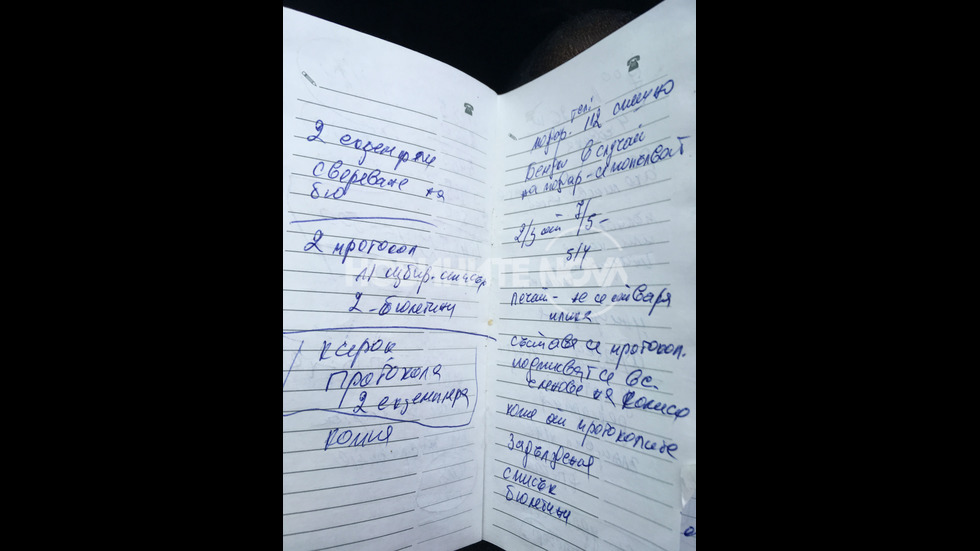 2 екземпляр
сверяване на
бю
2 протокол
1) избир. списък
2 - бюлетини
ксерок
протокола
2 екземпляра
копия
тел.
повр. 112
в случай
на повр - използват
2/3 от - 7/5 -
5/4
печат - не се отваря
плика
съставя се протокол.
подписват се вс.
членове на комиси
копие от протоколите
Задължения
списък
бюлетини
НОВИНИТЕ NOVA